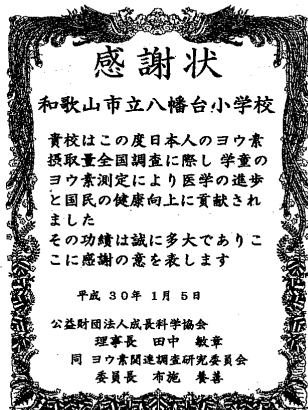 感謝状
和歌山市立八幡台小学校
貴校はこの度日本人のヨウ素
摂取量全国調査に際し学童の
ヨウ素測定により医学の進歩
と国民の健康向上に貢献され
ました
その功績は誠に多大でありこ
こに感謝の意を表します
平成30年1月5日
公益財団法人成長科学協会
理事長 田中 敏章
同 ヨウ素関連調査研究委員会
委員長 布施 養善